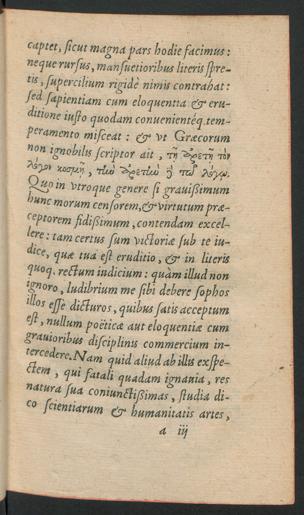 captet, sicut magna pars hodie facimus:
neque rursus, mansuetioribus literis spre-
tis, supercilium rigidè nimis contrahat:
sed sapientiam cum eloquentia & eru-
ditione iusto quodam conuenientéq. tem-
peramento misceat: & vt Græcorum
non ignobilis scriptor ait, τῇ ἀρετῇ τὸν
λόγον κοσμῇ, τὴν ἀρετὴν ἢ τῷ λόγῳ.
Quo in vtroque genere si grauissimum
hunc morum censorem, & virtutum præ-
ceptorem fidissimum, contendam excel-
lere: tam certus sum victoriæ sub te iu-
dice, quæ tua est eruditio, & in literis
quoq. rectum iudicium: quàm illud non
ignoro, ludibrium me sibi debere sophos
illos esse dicturos, quibus satis acceptum
est, nullum poëticæ aut eloquentiæ cum
grauioribus disciplinis commercium in-
tercedere. Nam quid aliud ab illis exspe-
ctem, qui fatali quadam ignauia, res
natura sua coniunctissimas, studia di-
co scientiarum & humanitatis artes,
a iij